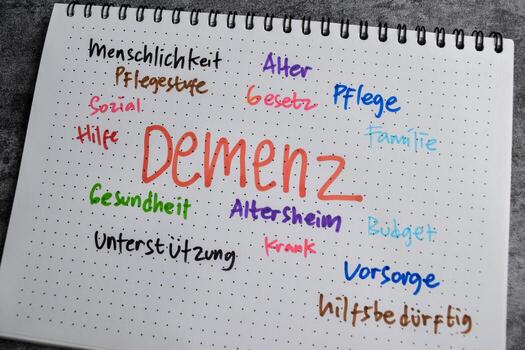 Menschlichkeit
Alter
Pflegestufe
Gesetz
Pflege
Sozial
Hilfe
Familie
Demenz
Gesundheit
Altersheim
Budget
Unterstützung
Krank
Vorsorge
hilfsbedürftig